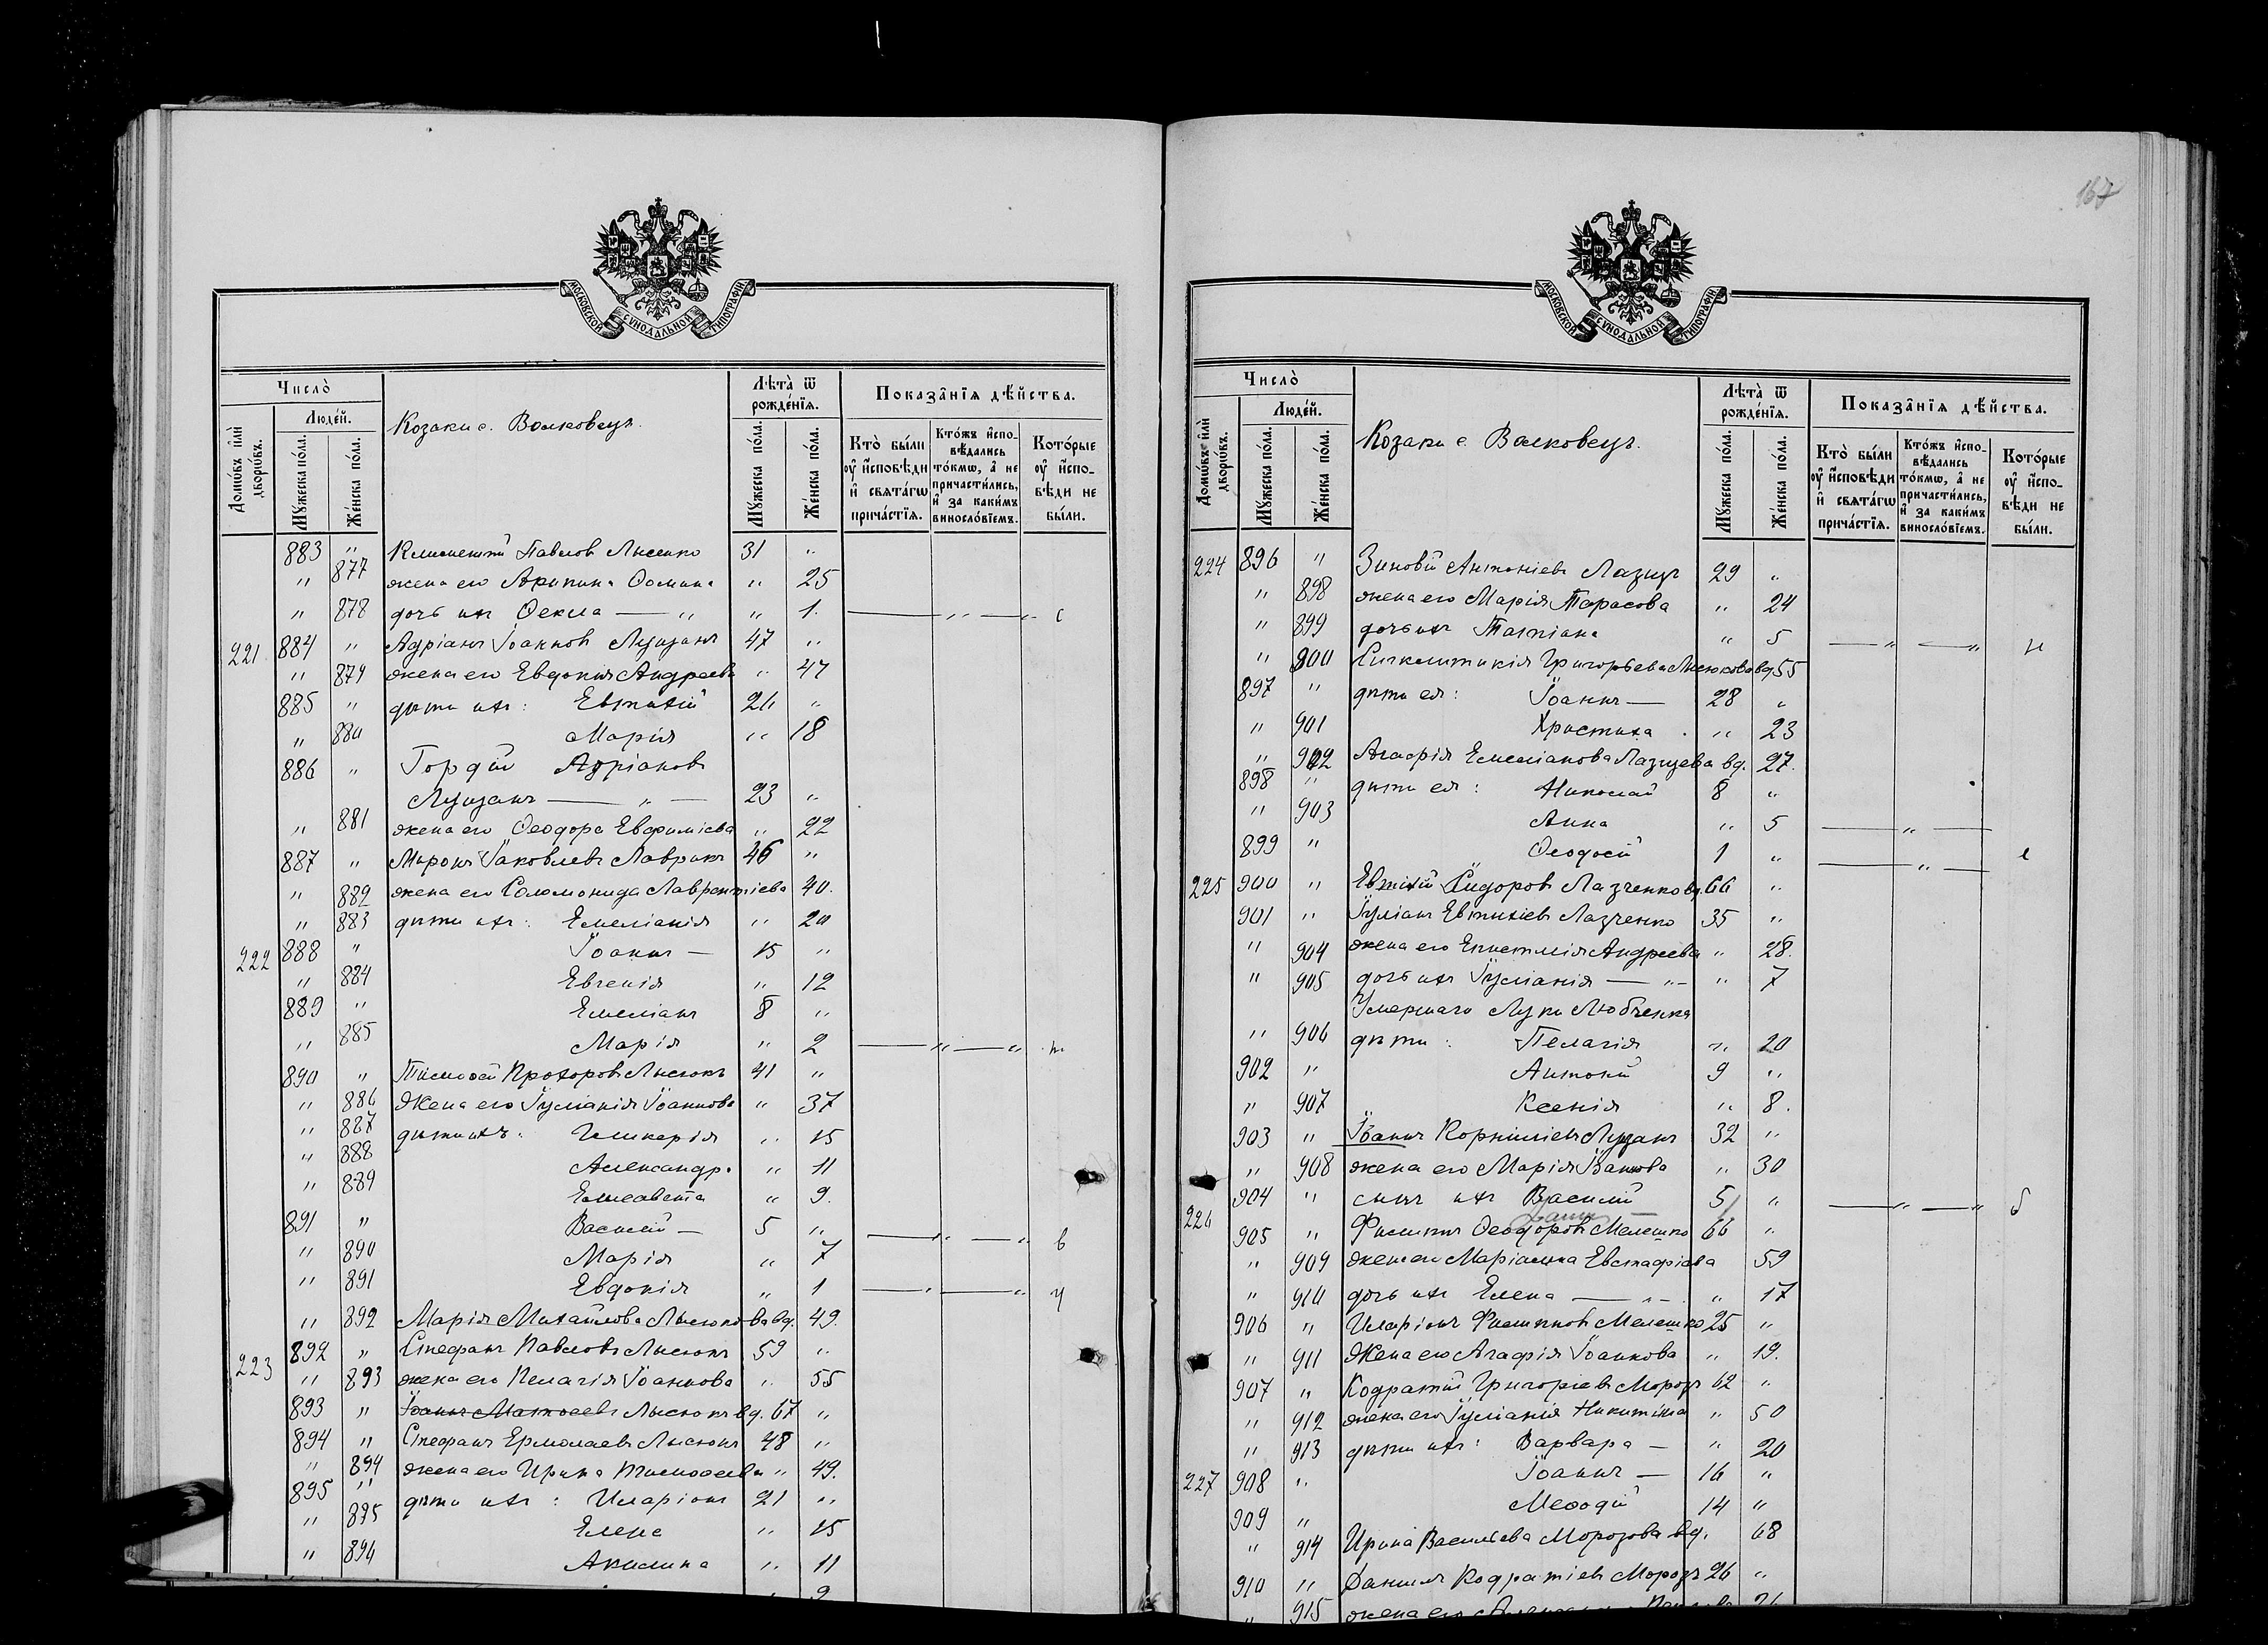 167
МОСКОВСКОЙ СѴНОДАЛЬНОЙ ТИПОГРАФІИ
Число̀
Домѡ́въ и҆лѝ дворѡ́въ.
Люде́й.
Мꙋ́жеска по́ла.
Же́нска по́ла.
Козаки с. Волковецъ.
Лѣта̀ ѿ рожде́нїѧ.
Мꙋ́жеска по́ла.
Же́нска по́ла.
Показа̑нїѧ дѣ́йства.
Кто̀ бы́ли ᲂу҆ и҆сповѣ́ди и҆ свѧта́гѡ прича́стїѧ.
Кто́жъ и҆сповѣ́дались то́кмѡ, а҆ не причасти́лись, и҆ за каки́мъ винослов́їемъ.
Кото́рые ᲂу҆ и҆сповѣ́ди не бы́ли.
883 " Климентій Павлов Лысенко 31 "
" 877 жена его Агрипина Ѳомина " 25
" 878 дочь ихъ Ѳекла — " " 1 — " — " с
221 884 " Адріанъ Іоаннов Луцанъ 47 "
" 879 жена его Евдокія Андреева " 47
885 " дѣти ихъ: Евтихій 26 "
" 880 Марія " 18
886 " Гордій Адріанов
Луцанъ — " — 23 "
" 881 жена его Ѳеодора Евфиміева " 22
887 " Миронъ Іаковлевъ Лавринъ 46 "
" 882 жена его Соломонида Лаврентіева 40.
" 883 дѣти ихъ: Емеліанія " 20
222 888 " Іоаннъ — 15 "
" 884 Евгенія " 12
889 " Емеліанъ 8 "
" 885 Марія " 2 — " — " т
890 " Тимоѳей Прохоровъ Лысюкъ 41 "
" 886 Жена его Іуліанія Іоаннова " 37
" 887 дѣти ихъ: Гликерія " 15
" 888 Александр. " 11
" 889 Елисавета " 9.
891 " Василій — 5 " — " — " в
" 890 Марія " 7
" 891 Евдокія " 1 — " — " у
" 892 Марія Михайлова Лысюкова вд. 49.
223 892 " Стефанъ Павловъ Лысюкъ 59 "
" 893 жена его Пелагія Іоаннова " 55
893 " Іоаннъ Матѳеевъ Лысюкъ вд. 67 "
894 " Стефанъ Ермолаевъ Лысюкъ 48 "
" 894 жена его Ирина Тимоѳеева " 49.
895 " дѣти ихъ: Иларіонъ 21 "
" 895 Елена " 15
" 896 Акилина " 11
9
МОСКОВСКОЙ СѴНОДАЛЬНОЙ ТИПОГРАФІИ
Число̀
Домѡ́въ и҆лѝ дворѡ́въ.
Люде́й.
Мꙋ́жеска по́ла.
Же́нска по́ла.
Козаки с. Волковецъ.
Лѣта̀ ѿ рожде́нїѧ.
Мꙋ́жеска по́ла.
Же́нска по́ла.
Показа̑нїѧ дѣ́йства.
Кто̀ бы́ли ᲂу҆ и҆сповѣ́ди и҆ свѧта́гѡ прича́стїѧ.
Кто́жъ и҆сповѣ́дались то́кмѡ, а҆ не причасти́лись, и҆ за каки́мъ винослов́їемъ.
Кото́рые ᲂу҆ и҆сповѣ́ди не бы́ли.
224 896 " Зиновій Антоніевъ Лазицъ 29 "
" 898 жена его Марія Тарасова " 24
" 899 дочь ихъ Татіана " 5 — " — " н
" 900 Синклитикія Григорьева Лысюкова вд. 55
897 " дѣти ея: Іоаннъ — 28 "
" 901 Христина " 23
" 902 Агафія Емеліанова Лазицева вд. 27.
898 " дѣти ея: Николай 8 "
" 903 Анна " 5 — " —
899 " Ѳеодосій 1 " — " — е
225 900 " Евтихій Сидоровъ Лазченко вд. 66 "
901 " Іуліанъ Евтихіевъ Лазченко 35 "
" 904 жена его Епистимія Андреева " 28.
" 905 дочь ихъ Іуліанія — " — " 7
Умершаго Луки Любченка
" 906 дѣти: Пелагія " 20
902 " Антоній 9 "
" 907 Ксенія " 8.
903 " Іоаннъ Корниліевъ Луцанъ 32 "
" 908 жена его Марія Іоаннова " 30
904 " сынъ ихъ Василій 5 " — " — " б
226 905 " Филиппъ Ѳеодоровъ Мелешко 66 "
" 909 жена его Маріамна Евстафіева 59
" 910 дочь ихъ Елена — " — " 17
906 " Иларіонъ Филипповъ Мелешко 25 "
" 911 Жена его Агафія Іоаннова " 19.
907 " Кодратій Григоріевъ Морозъ 62 "
" 912 жена его Іуліанія Никитина " 50
" 913 дѣти ихъ: Варвара — " 20
227 908 " Іоаннъ — 16 "
909 " Меѳодій 14 "
" 914 Ирина Василіева Морозова вд. 68
910 " Даніилъ Кодратіевъ Морозъ 26 "
" 915 жена его